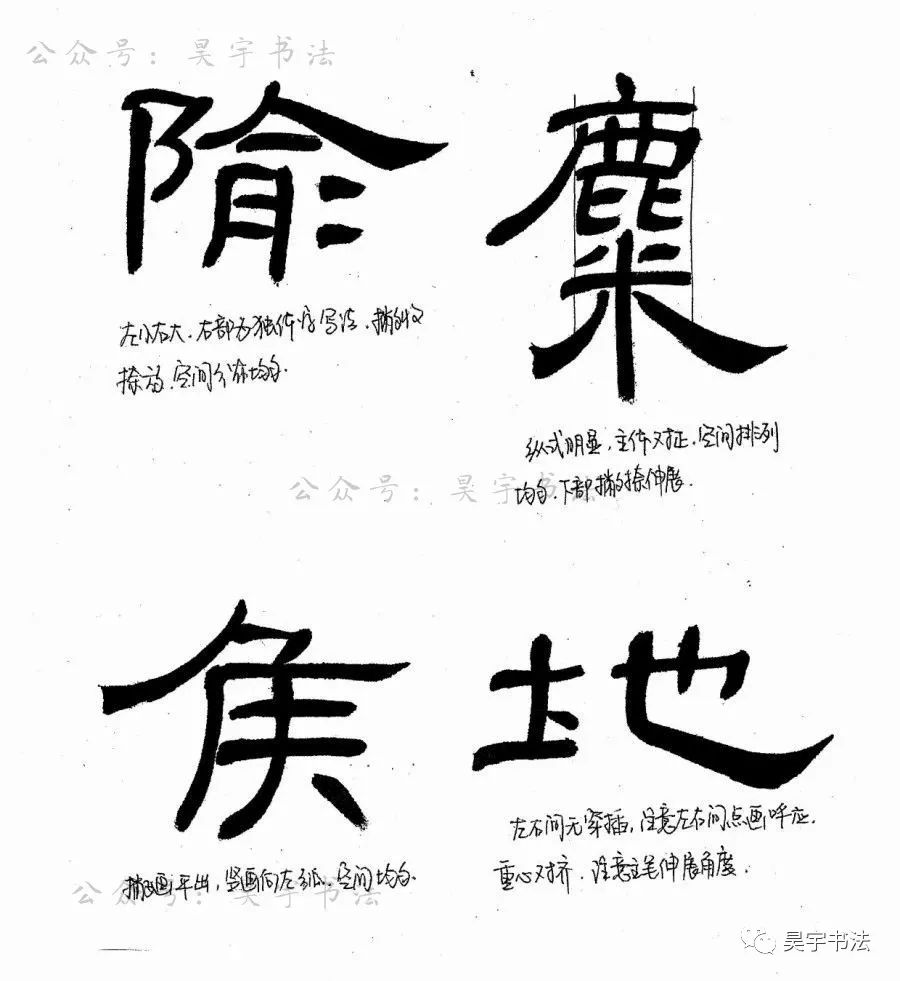 公众号：昊宇书法
隃 麋
左小右大、右部为独体字写法、撇收
捺放、空间分布均匀.
纵式明显，主体对正、空间排列
均匀、下部撇捺伸展.
公众号：昊宇书法
侯 地
左右间无穿插，注意左右间点画呼应.
重心对齐、注意主笔伸展角度.
撇画平出，竖画向左弧、空间均匀.
公众号：昊宇书法
昊宇书法